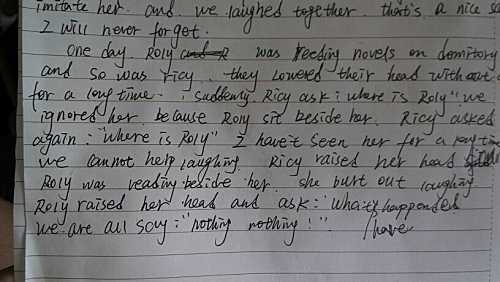 imitate her. and we laughed together. that's a nice
I will never forget.
One day. Roly was reeding novels on domitory
and so was ricy. they lowered their head without
for a long time. suddenny. Ricy ask: where is Roly" we
ignored her. because Rony sit beside her. Ricy asked
again: "where is Roly" I have't seen her for a
we cannot help laughing. Ricy raised her head
Roly was reading beside her. she burt out laughing
Roly raised her head and ask: "what's happended
we are all say: "nothing nothing!" have